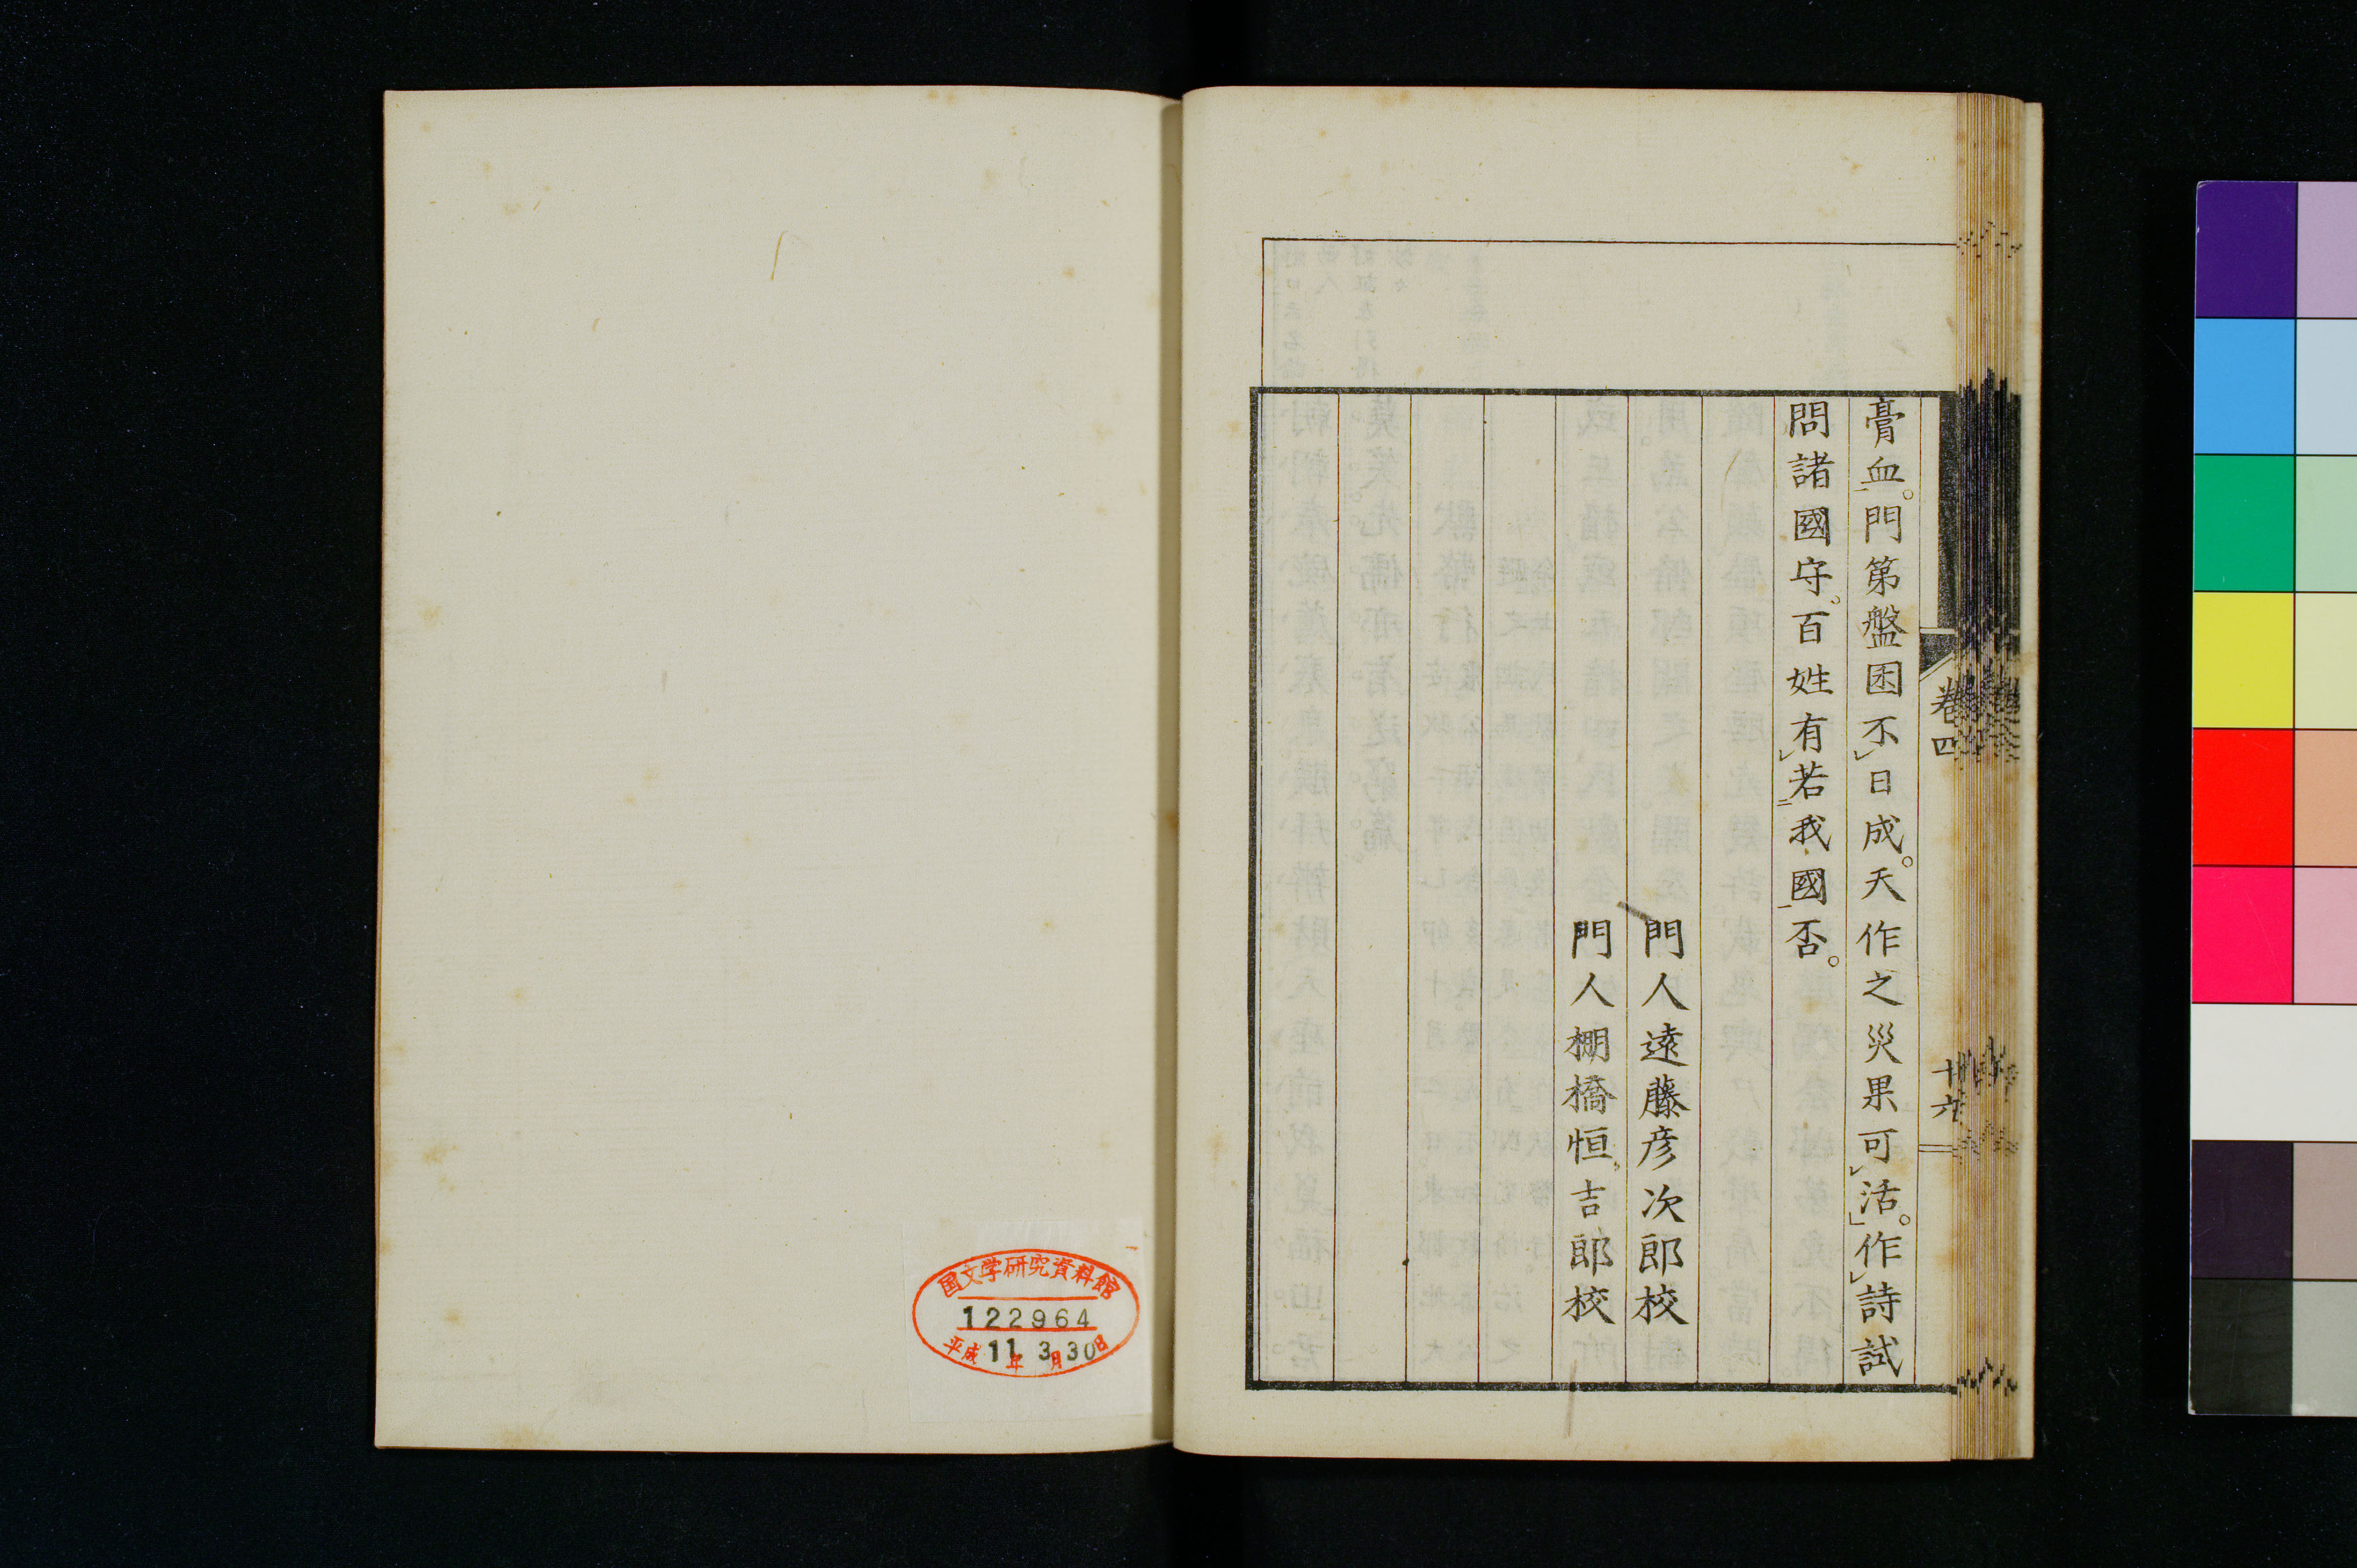 膏血。門第盤困不日成。天作之災果可活。作詩試
問諸國守。百姓有若我國否。
門人遠藤彦次郎校
門人棚橋恒吉郎校
卷四
十六
国文学研究資料館
122964
平成11年3月30日